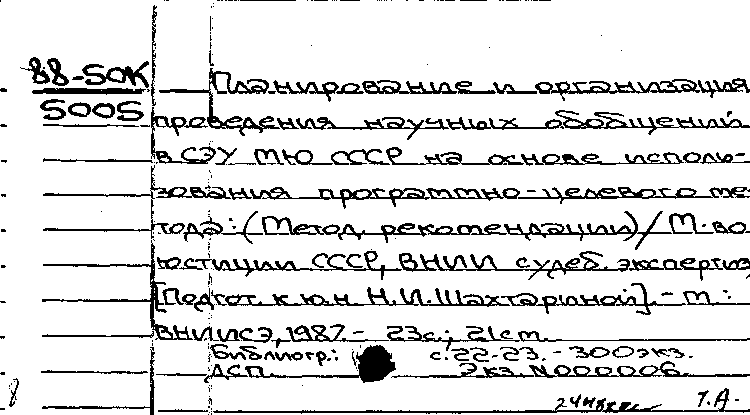 88-50К
5005
Планирование и организация
проведения научных обобщений
в СЭУ МЮ СССР на основе исполь-
зования программно-целевого ме-
тода: (Метод. рекомендации) / М-во
юстиции СССР, ВНИИ судеб. экспертиз
[Подгот. к.ю.н. Н.И.Шахтариной]. - М.:
ВНИИСЭ, 1987. - 23с.; 21см.
Библиогр.: с.22-23. - 300экз.
ДСП. Экз. N000006.
Т.А.
8